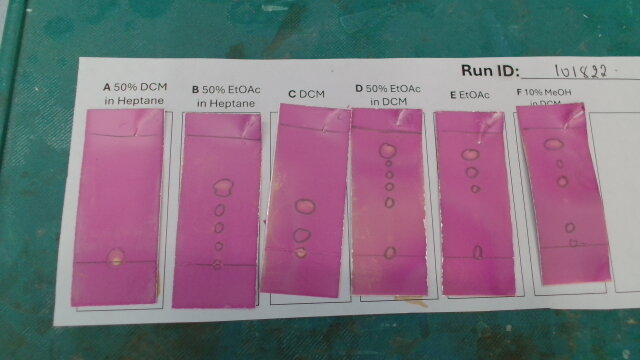 Run ID: 101822
A 50% DCM
in Heptane
B 50% EtOAc
in Heptane
C DCM
D 50% EtOAc
in DCM
E EtOAc
F 10% MeOH
in DCM